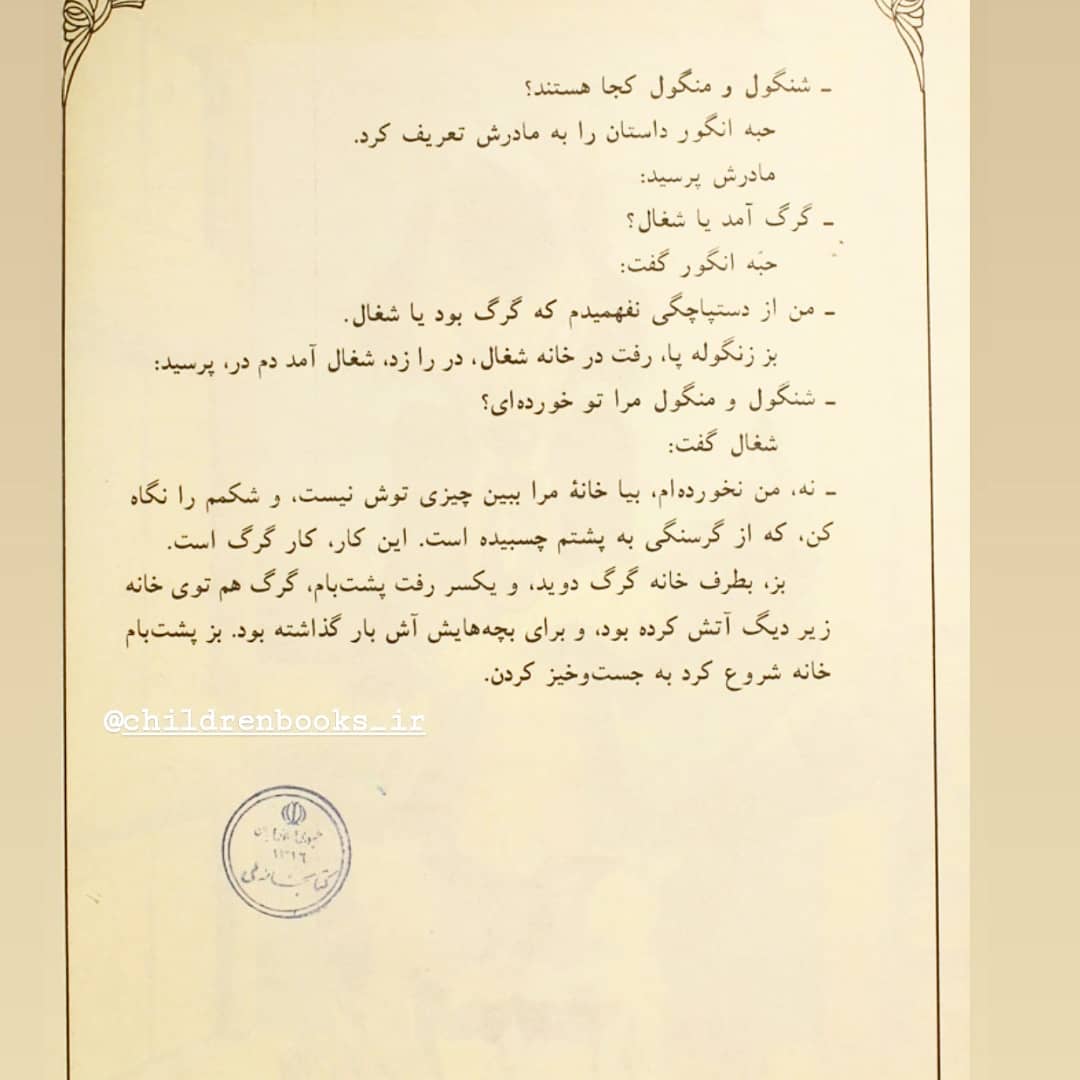 ـ شنگول و منگول کجا هستند؟
حبه انگور داستان را به مادرش تعریف کرد.
مادرش پرسید:
ـ گرگ آمد یا شغال؟
حبّه انگور گفت:
ـ من از دستپاچگی نفهمیدم که گرگ بود یا شغال.
بز زنگوله پا، رفت در خانه شغال، در را زد، شغال آمد دم در، پرسید:
ـ شنگول و منگول مرا تو خورده‌ای؟
شغال گفت:
ـ نه، من نخورده‌ام، بیا خانهٔ مرا ببین چیزی توش نیست، و شکمم را نگاه
کن، که از گرسنگی به پشتم چسبیده است. این کار، کار گرگ است.
بز، بطرف خانه گرگ دوید، و یکسر رفت پشت‌بام، گرگ هم توی خانه
زیر دیگ آتش کرده بود، و برای بچه‌هایش آش بار گذاشته بود. بز پشت‌بام
خانه شروع کرد به جست‌وخیز کردن.
@childrenbooks_ir
جمهوری اسلامی ایران
۱۳۱۶
کتابخانه ملی